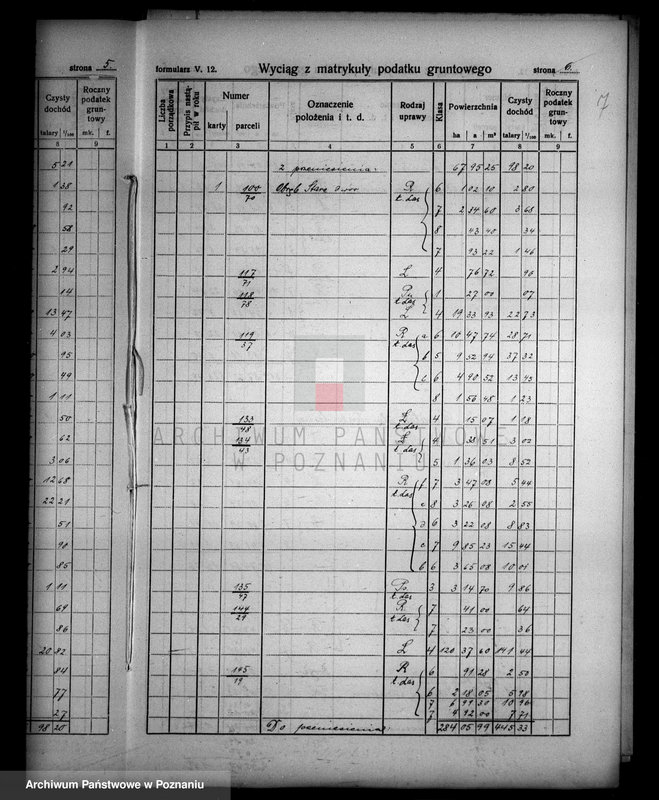 strona 5
Czysty dochód Roczny podatek gruntowy
talary 1/100 mk. f.
8 9
5 21
1 38
92
58
29
2 94
14
13 47
4 03
95
49
1 11
50
62
3 06
12 68
22 21
51
90
85
1 11
64
86
20 82
84
77
27
98 20
formularz V. 12. Wyciąg z matrykuły podatku gruntowego strona 6.
7
Liczba porządkowa Przypis nastąpił w roku Numer Oznaczenie położenia i t. d. Rodzaj uprawy Klasa Powierzchnia Czysty dochód Roczny podatek gruntowy
karty parceli ha a m² talary 1/100 mk. f.
1 2 3 4 5 6 7 8 9
z przeniesienia 67 95 25 98 20
1 100/70 Obręb Stare R 6 1 02 10 2 80
t. das 7 2 84 60 3 68
8 43 40 34
7 93 22 1 46
117/71 Ł 4 76 72 90
118/78 1 27 00 07
t. das Ł 4 19 33 93 22 73
119/37 R a 6 10 47 74 28 71
t. das b 5 9 52 94 37 32
c 6 4 90 52 13 43
8 1 56 48 1 23
133/48 Ł 4 15 07 1 18
t. das
134/43 Ł 4 38 51 3 02
t. das 5 1 36 03 8 52
R f 7 3 47 08 5 44
t. das e 8 3 26 08 2 55
d 6 3 22 08 8 83
c 7 9 85 23 15 44
b 6 3 65 08 10 01
135/47 3 3 14 70 9 86
t. das
144/29 R 7 41 00 64
t. das 7 23 00 36
Ł 4 120 37 60 141 44
145/19 R 6 91 28 2 50
t. das 6 2 18 05 5 98
7 6 91 30 10 96
7 4 92 00 7 71
Do przeniesienia 284 05 99 445 33
ARCHIWUM PAŃSTWOWE
W POZNANIU
Archiwum Państwowe w Poznaniu